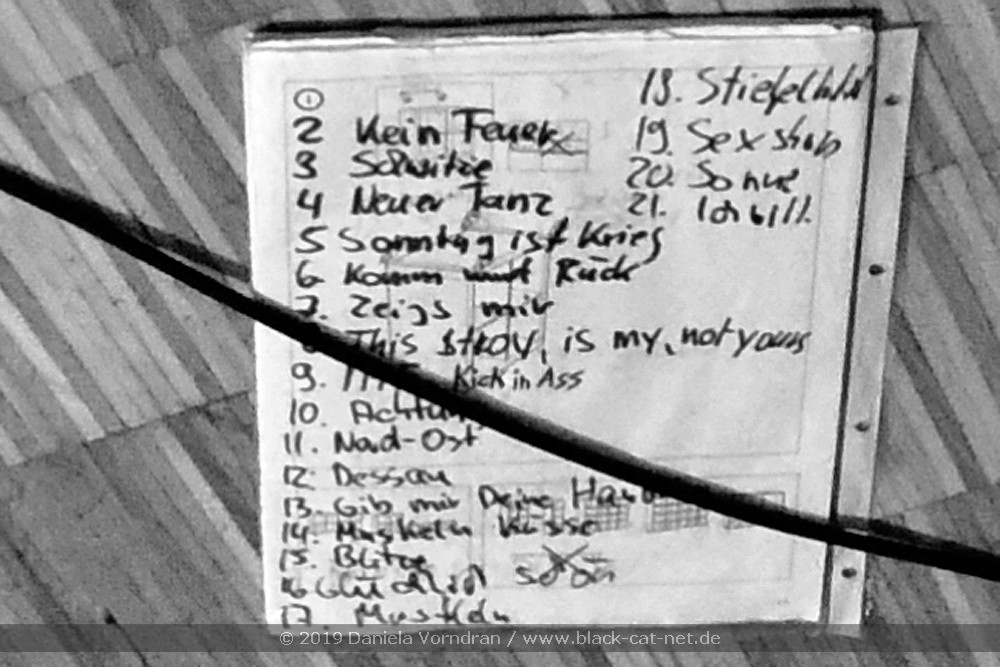 1
2 Kein Feuer
3 Schwitze
4 Neuer Tanz
5 Sonntag ist Krieg
6 Komm Rück
7. Zeigs mir
This is my, not yours
9. Kick in Ass
10.
11. Nord-Ost
12. Dessau
13. Gib mir Deine
14. Muskeln Küsse
15. Blitze
16 Glücklich
schön
17. Muskeln
18.
19. Sex shop
20. Sonne
21. Ich will.
© 2019 Daniela Vorndran / www.black-cat-net.de